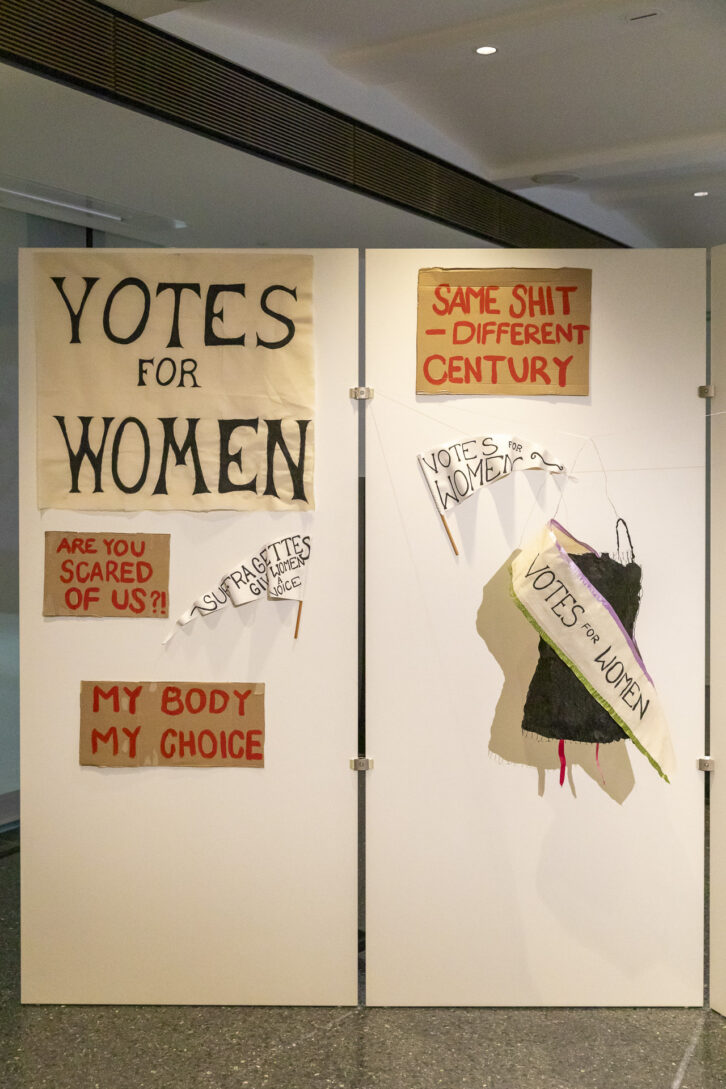 VOTES
FOR
WOMEN
ARE YOU
SCARED
OF US?!
SUFRAGETTES
GIV WOMEN
A
VOICE
MY BODY
MY CHOICE
SAME SHIT
– DIFFERENT
CENTURY
VOTES FOR
WOMEN
VOTES FOR WOMEN